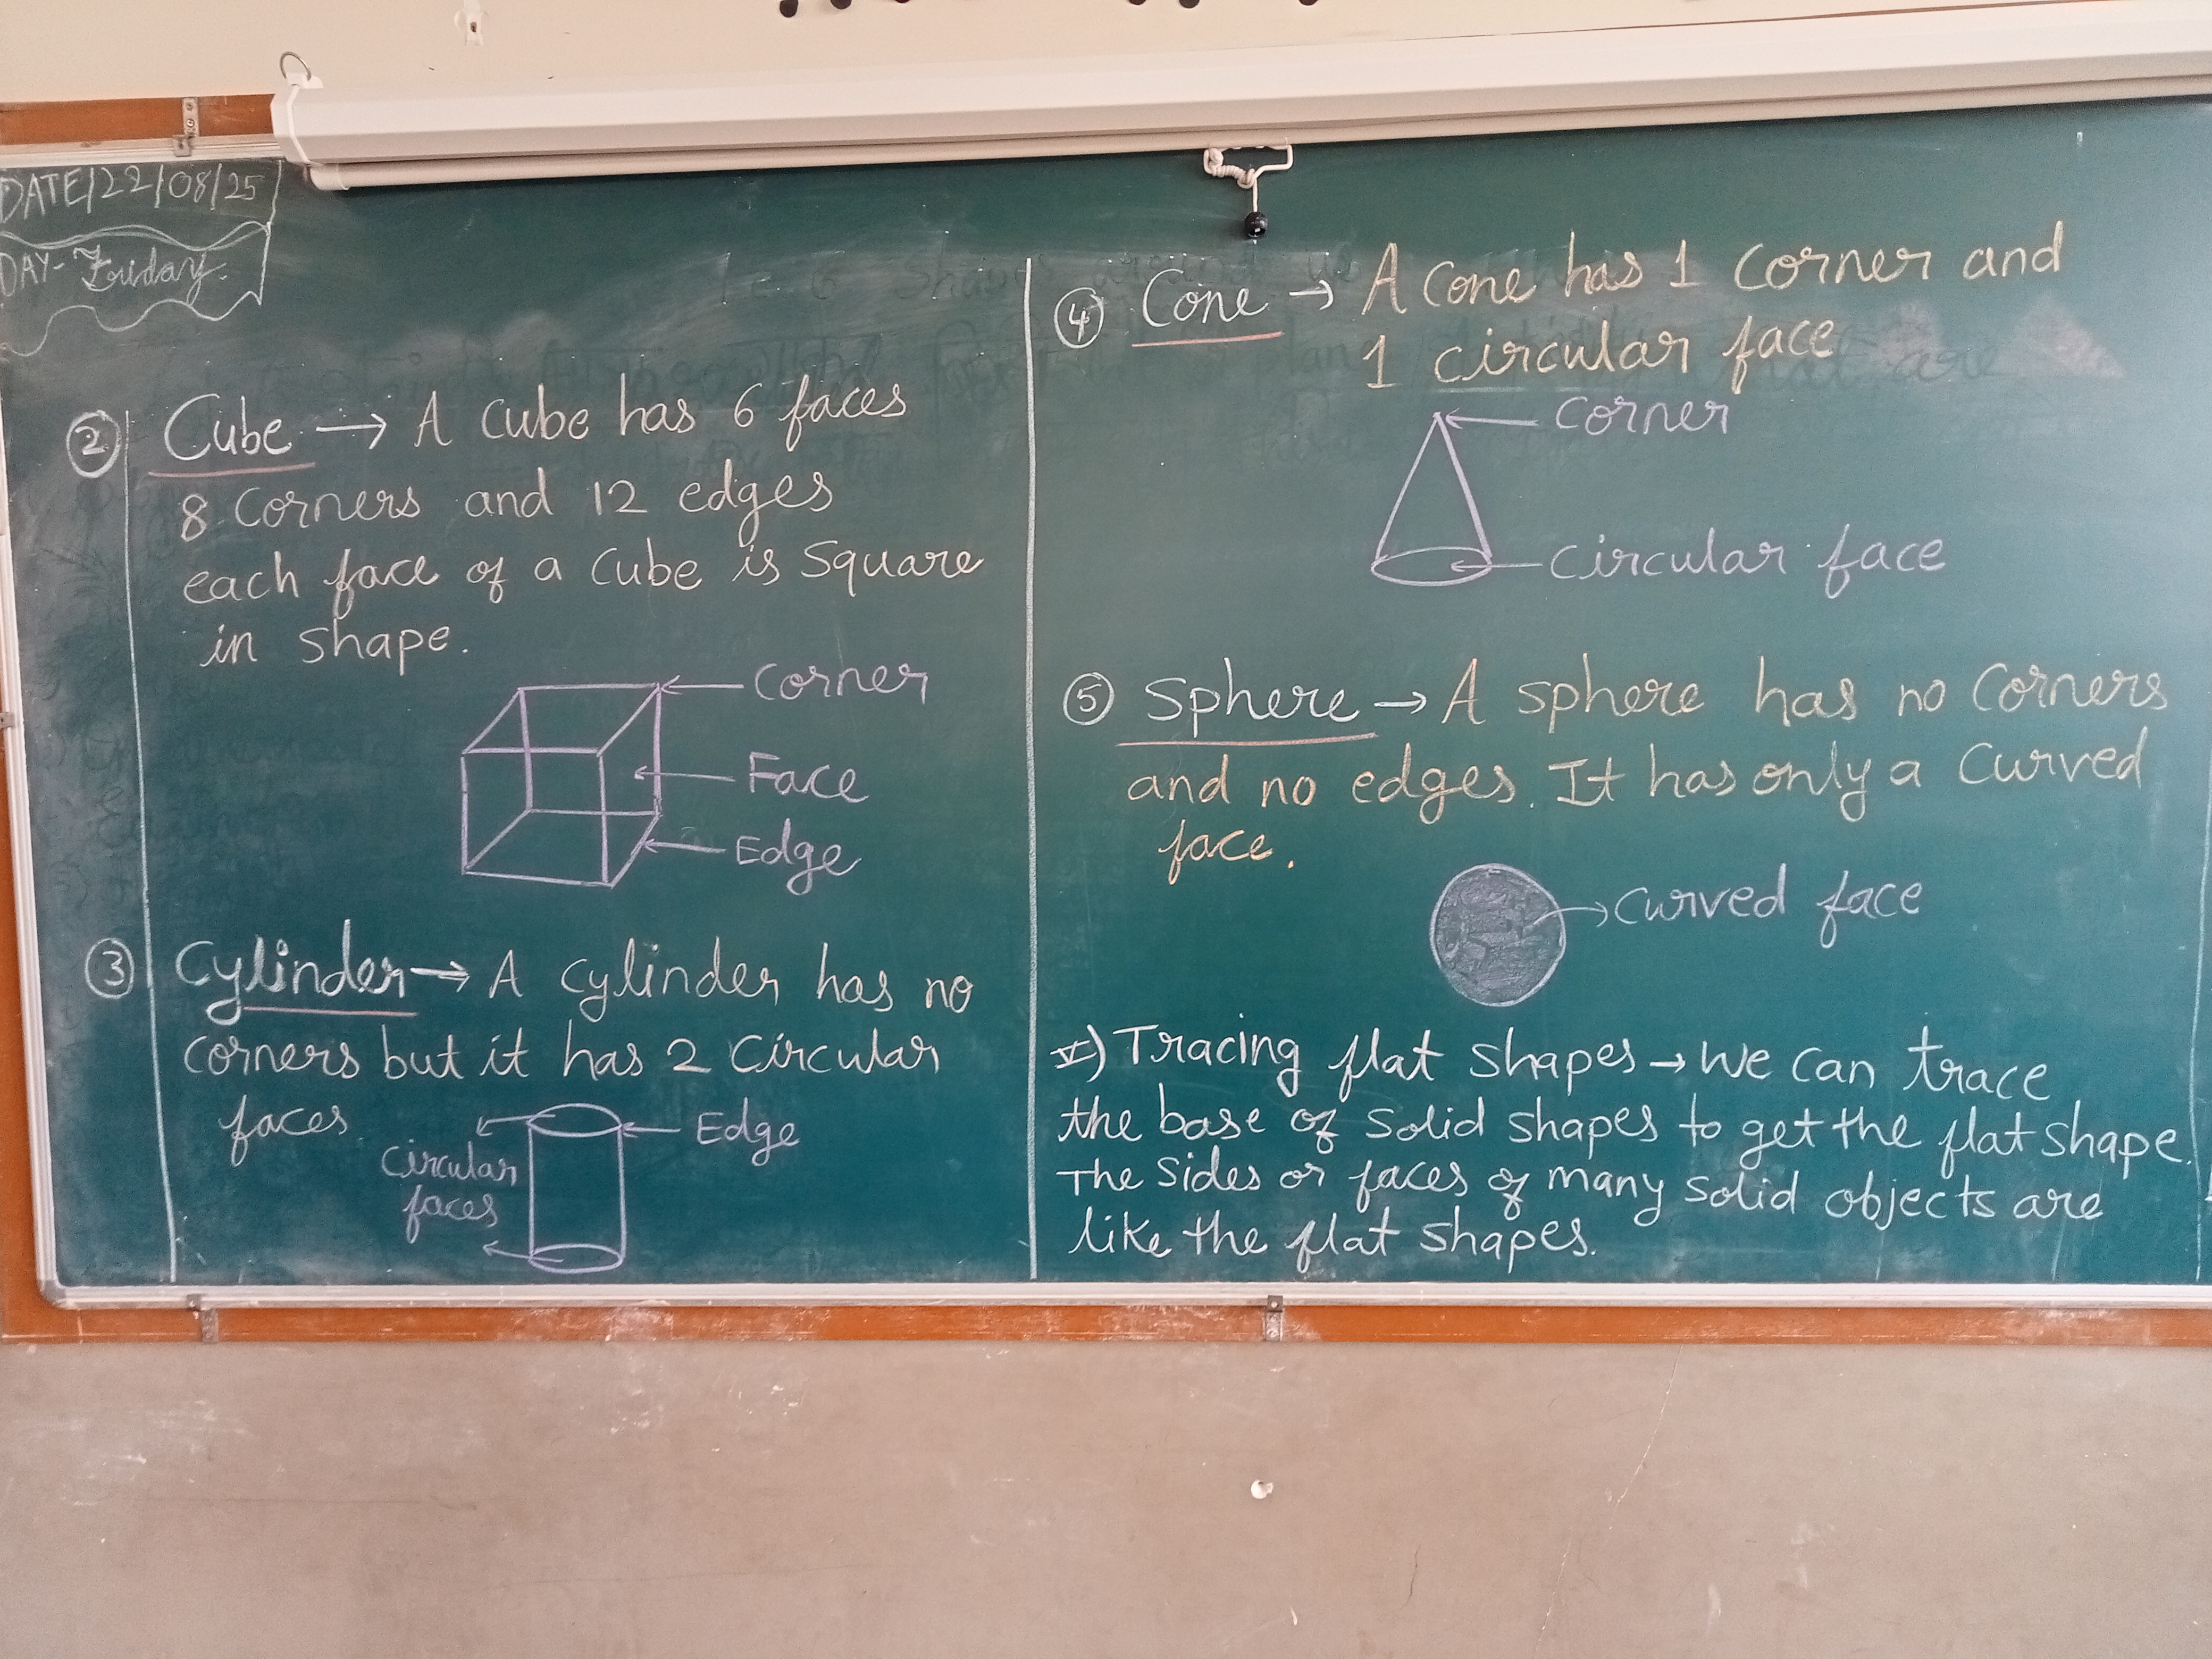 DATE/22/08/25
DAY- Friday.
② Cube → A cube has 6 faces
8 corners and 12 edges
each face of a cube is square
in shape.
Corner
Face
Edge
③ Cylinder → A cylinder has no
corners but it has 2 circular
faces
Edge
Circular
faces
④ Cone → A cone has 1 corner and
1 circular face
Corner
Circular face
⑤ Sphere → A sphere has no corners
and no edges. It has only a curved
face.
Curved face
V) Tracing flat shapes → We can trace
the base of solid shapes to get the flat shape.
The sides or faces of many solid objects are
like the flat shapes.